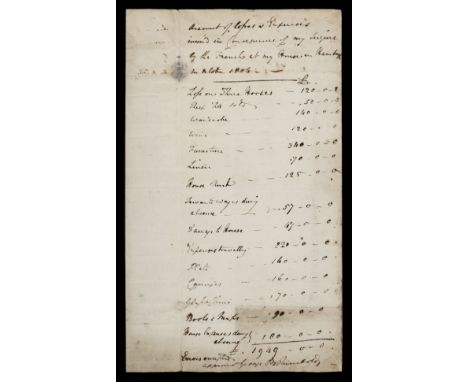 Account of Losses & Expences
incurred in Consequence of my Seizure
by the French at my House in Hamburg
in October 1804
£
Loss on Three Horses — 120-0-0
50-0-0
Wardrobe — 140-0-0
Wine — 120-0-0
Furniture — 340-0-0
Linen — 70-0-0
House Rent — 125-0-0
Servants wages during
absence — 57-0-0
Damage to House — 47-0-0
Expences travelling — 220-0-0
Plate — 160-0-0
Carriages — 160-0-0
170-0-0
Books & Maps — 90-0-0
House Expences during
absence 180-0-0
1949-0-0
Errors excepted
George Rumbold